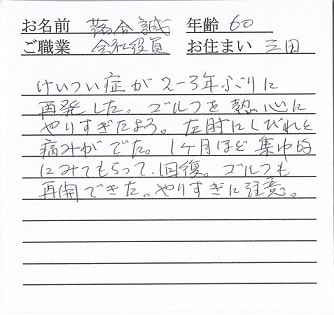 お名前 落合 誠 年齢 60
ご職業 会社役員 お住まい 三田
けいつい症が2-3年ぶりに
再発した。ゴルフを熱心に
やりすぎたよう。左肘にしびれと
痛みがでた。1ヶ月ほど集中的
にみてもらって、回復。ゴルフも
再開できた。やりすぎに注意。